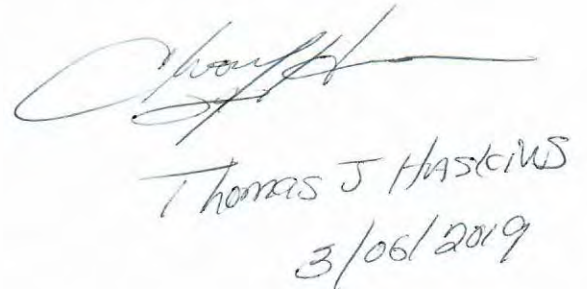 Thomas J HASKINS
3/06/2019